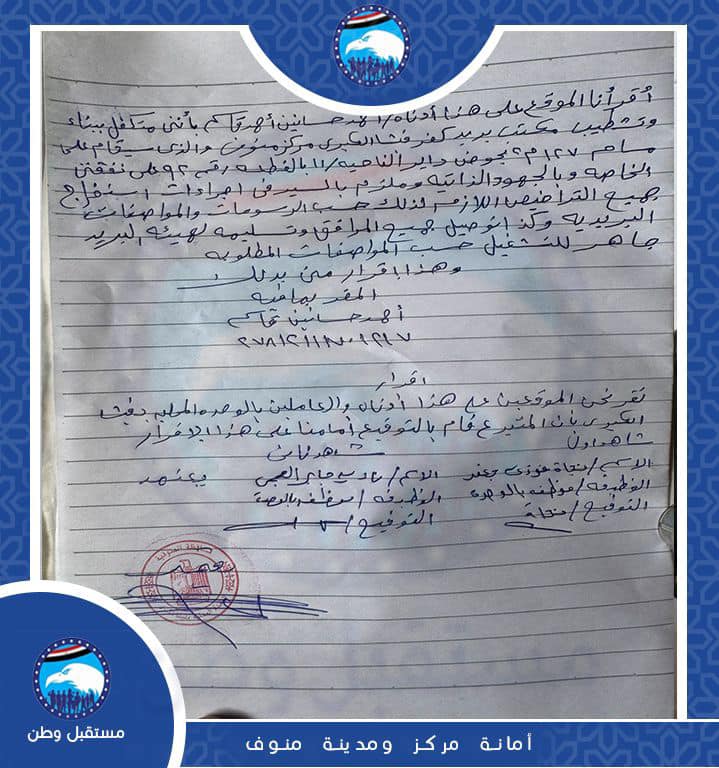 أقر أنا الموقع على هذا أدناه / أحمد حسانين أحمد قاسم بأننى متكفل ببناء
وتشطيب مكتب بريد كفر فيشا الكبرى مركز منوف والذى سيقام على
مساحه ١٢٧ م٢ بحوض داير الناحيه / ١١ بالقطعه رقم ٩٢ على نفقتى
الخاصه وبالجهود الذاتيه وملتزم بالسير فى اجراءات استخراج
جميع التراخيص اللازمه لذلك حسب الرسومات والمواصفات
البريديه وكذا توصيل جميع المرافق وتسليمه لهيئه البريد
جاهز للتشغيل حسب المواصفات المطلوبه
وهذا اقرار منى بذلك
المقر بما فيه
أحمد حسانين قاسم
اقرار
نقر نحن الموقعين على هذا أدناه والعاملين بالوحده المحليه بفيشا
الكبرى بأن المتبرع قام بالتوقيع أمامنا على هذا الاقرار
شاهد اول شاهد ثان
الاسم / نجاة فوزى الاسم / يعتمد
الوظيفه / موظفه بالوحده الوظيفه / موظف بالوحدة
التوقيع / نجاة التوقيع /
مستقبل وطن
أمانة مركز ومدينة منوف